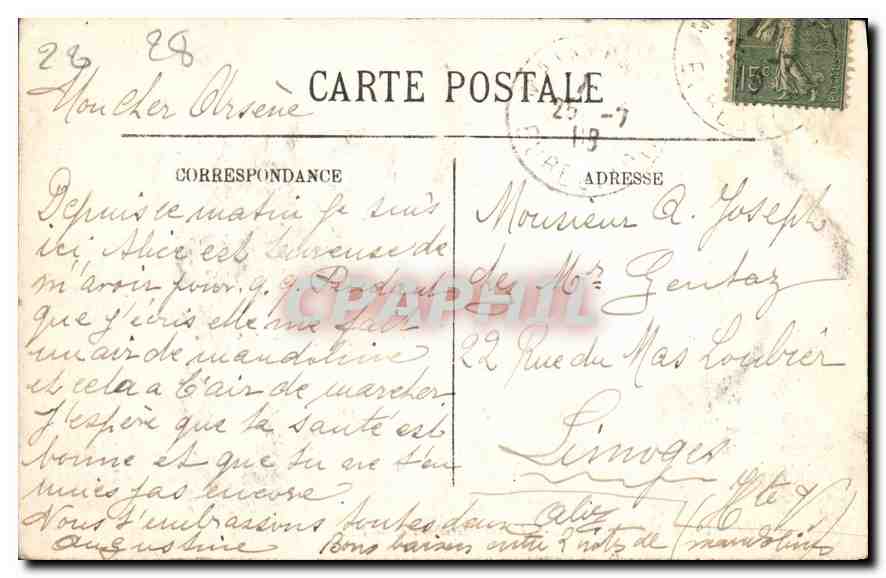 22 28
Mon cher Arsène
CARTE POSTALE
15c
25 -7
18
CORRESPONDANCE
ADRESSE
Depuis ce matin je suis
ici, Alice est heureuse de
m'avoir pour q. q. Pendant
que j'écris elle me fait
un air de mandoline
et cela a l'air de marcher
J'espère que ta santé est
bonne et que tu ne t'en
nuies pas encore
Nous t'embrassons toutes deux
Augustine
Bons baisers entre 2 notes de mandoline
Monsieur A. Joseph
chez Mr. Gentaz
22 Rue du Mas Loubier
Limoges
(Hte V)
CPAPHIL